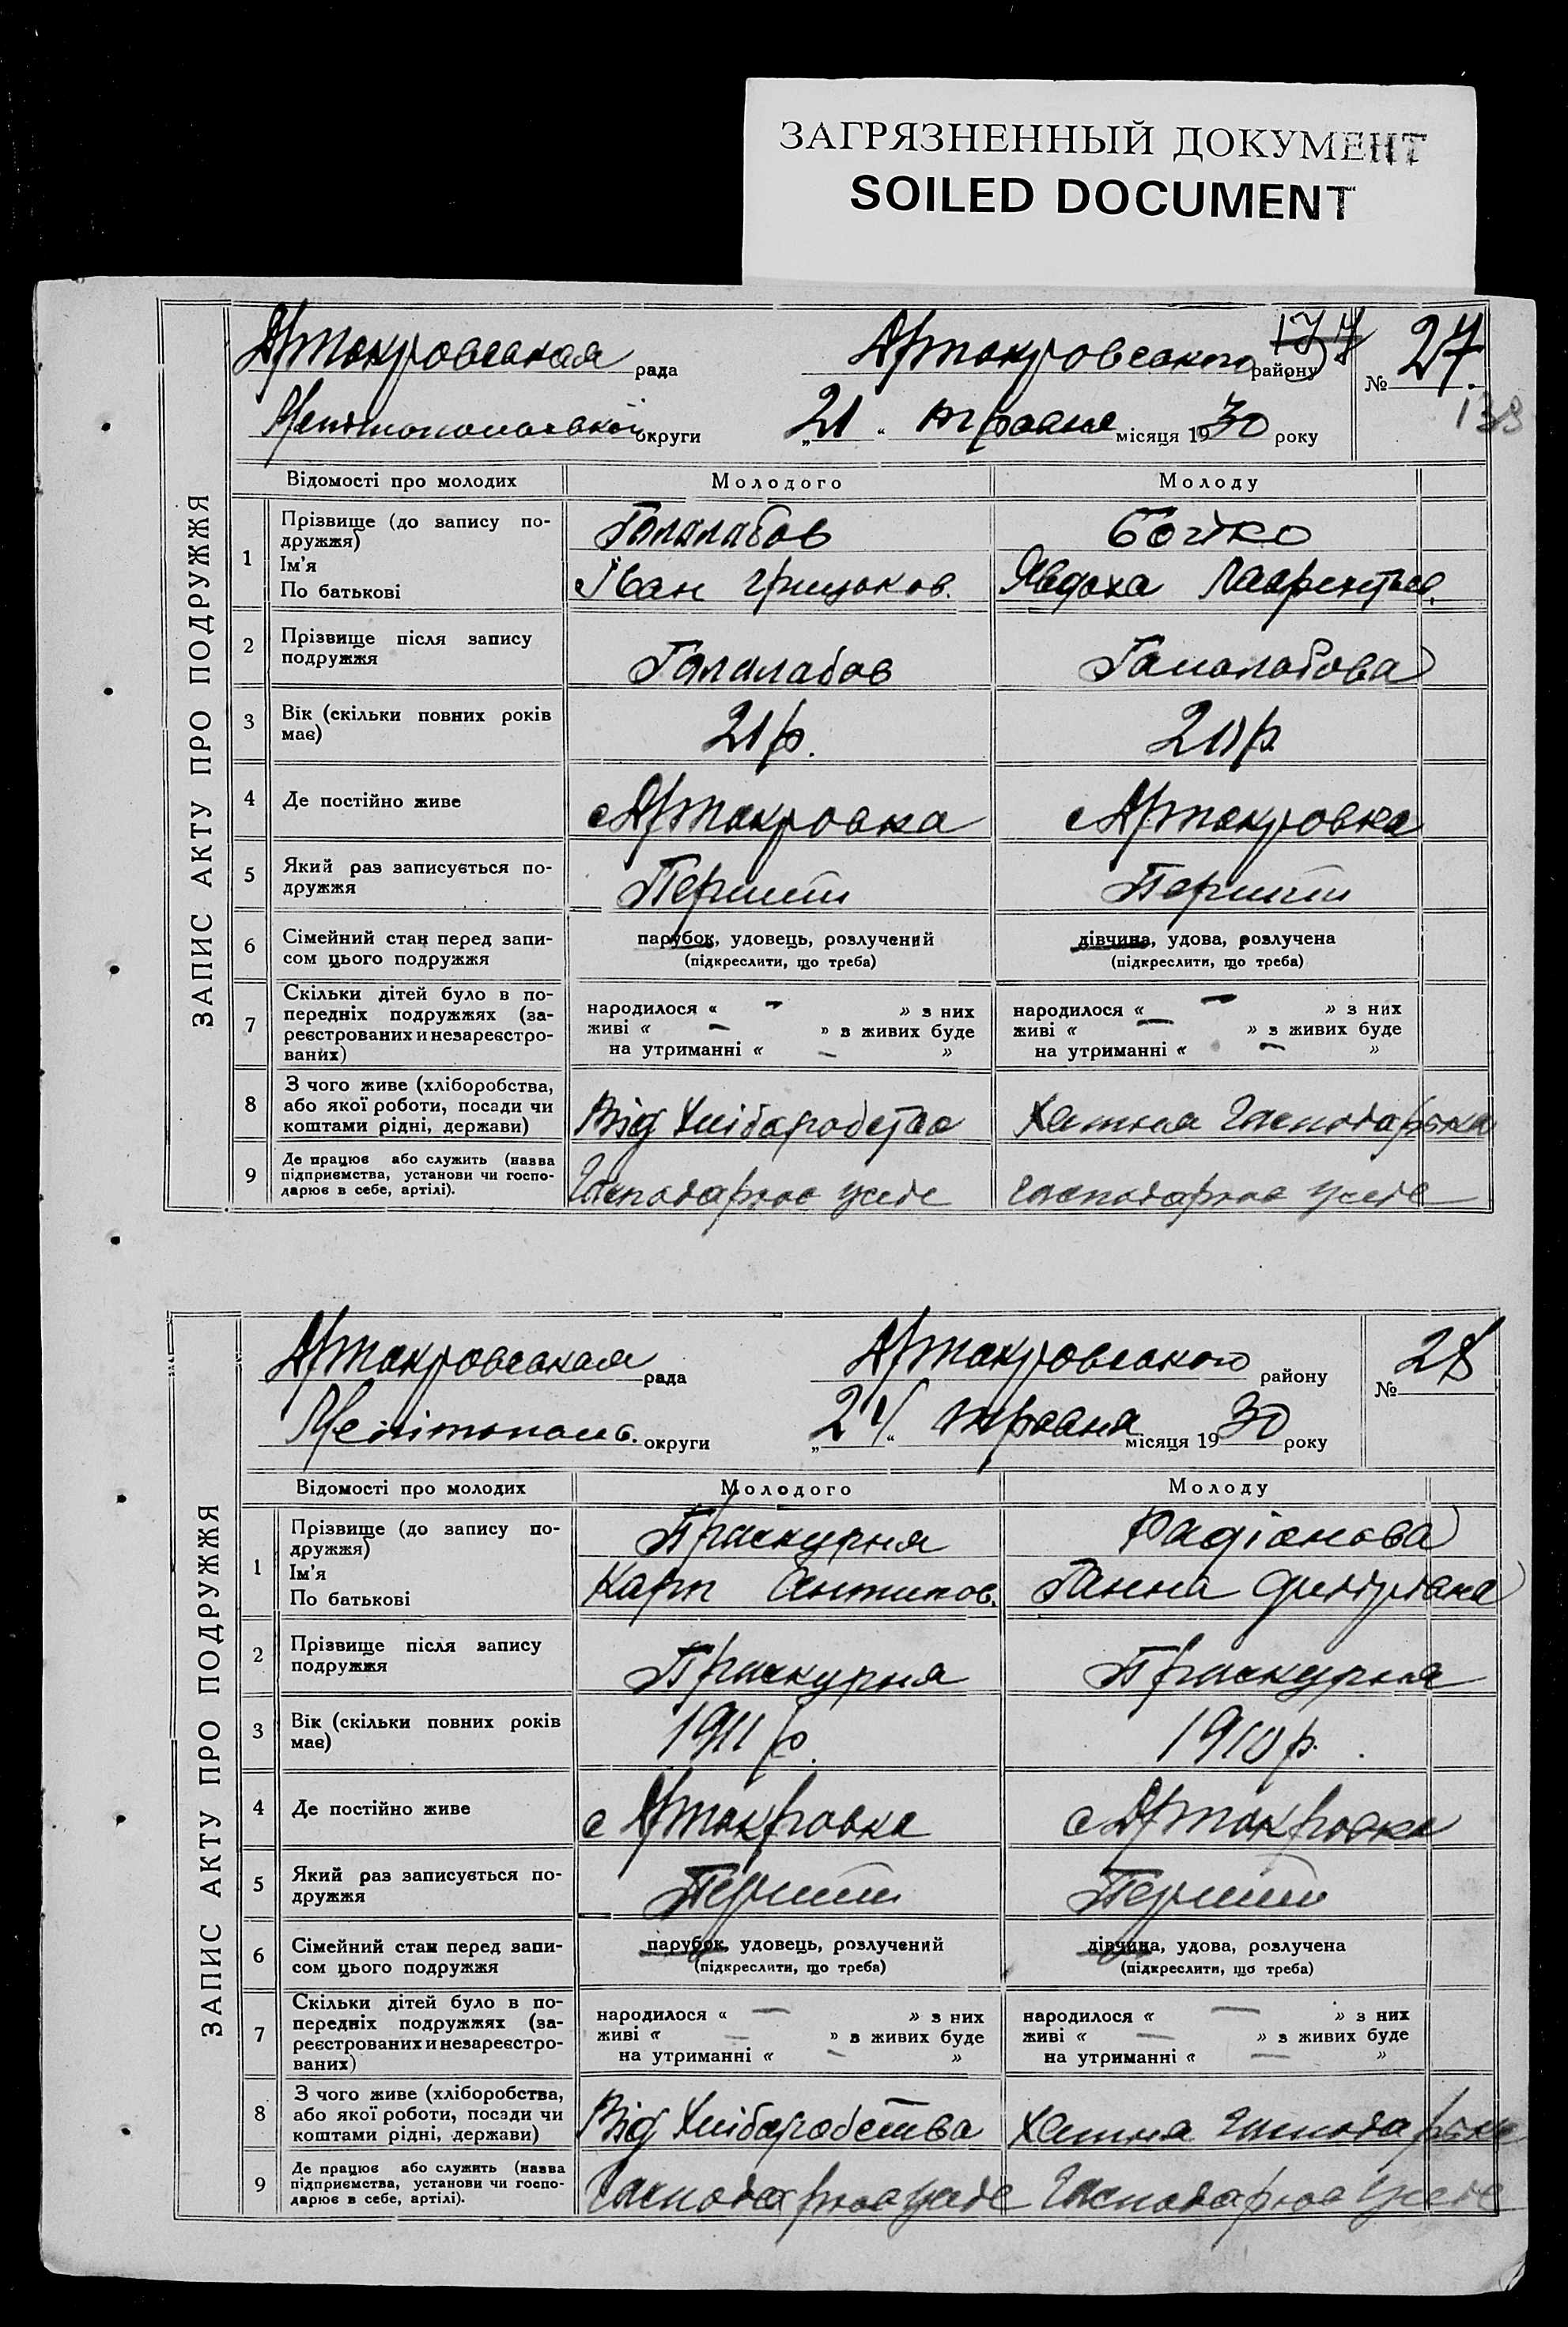 ЗАГРЯЗНЕННЫЙ ДОКУМЕНТ
SOILED DOCUMENT
ЗАПИС АКТУ ПРО ПОДРУЖЖЯ
рада району № 27
138
округи „21“ травня місяця 1930 року
Відомості про молодих Молодого Молоду
1 Прізвище (до запису по-
дружжя)
Ім'я
По батькові
Галалабов Бойко
Іван Грицьков. Явдоха Лаврентьев.
2 Прізвище після запису
подружжя
Галалабов Галалабова
3 Вік (скільки повних років
має)
21 р. 20 р.
4 Де постійно живе
с Ятокровка с Ятокровка
5 Який раз записується по-
дружжя
Перший Перший
6 Сімейний стан перед запи-
сом цього подружжя
парубок, удовець, розлучений дівчина, удова, розлучена
(підкреслити, що треба) (підкреслити, що треба)
7 Скільки дітей було в по-
передніх подружжях (за-
реєстрованих и незареєстро-
ваних)
народилося « – » з них народилося « – » з них
живі « – » в живих буде живі « – » з живих буде
на утриманні « – » на утриманні « – »
8 З чого живе (хліборобства,
або якої роботи, посади чи
коштами рідні, держави)
Від Хліборобства Хатня Господарька
9 Де працює або служить (назва
підприємства, установи чи госпо-
дарює в себе, артілі).
Господарює усебе Господарює усебе
ЗАПИС АКТУ ПРО ПОДРУЖЖЯ
рада району № 28
Мелітополь. округи „24“ травня місяця 1930 року
Відомості про молодих Молодого Молоду
1 Прізвище (до запису по-
дружжя)
Ім'я
По батькові
Праскурня Радіонова
Карп Антипов. Ганна
2 Прізвище після запису
подружжя
Праскурня Праскурня
3 Вік (скільки повних років
має)
1911 р. 1910 р.
4 Де постійно живе
5 Який раз записується по-
дружжя
Перший Перший
6 Сімейний стан перед запи-
сом цього подружжя
парубок, удовець, розлучений дівчина, удова, розлучена
(підкреслити, що треба) (підкреслити, що треба)
7 Скільки дітей було в по-
передніх подружжях (за-
реєстрованих и незареєстро-
ваних)
народилося « – » з них народилося « – » з них
живі « – » в живих буде живі « – » з живих буде
на утриманні « – » на утриманні « – »
8 З чого живе (хліборобства,
або якої роботи, посади чи
коштами рідні, держави)
Від Хліборобства Хатня Господарька
9 Де працює або служить (назва
підприємства, установи чи госпо-
дарює в себе, артілі).
Господарює усебе Господарює усебе